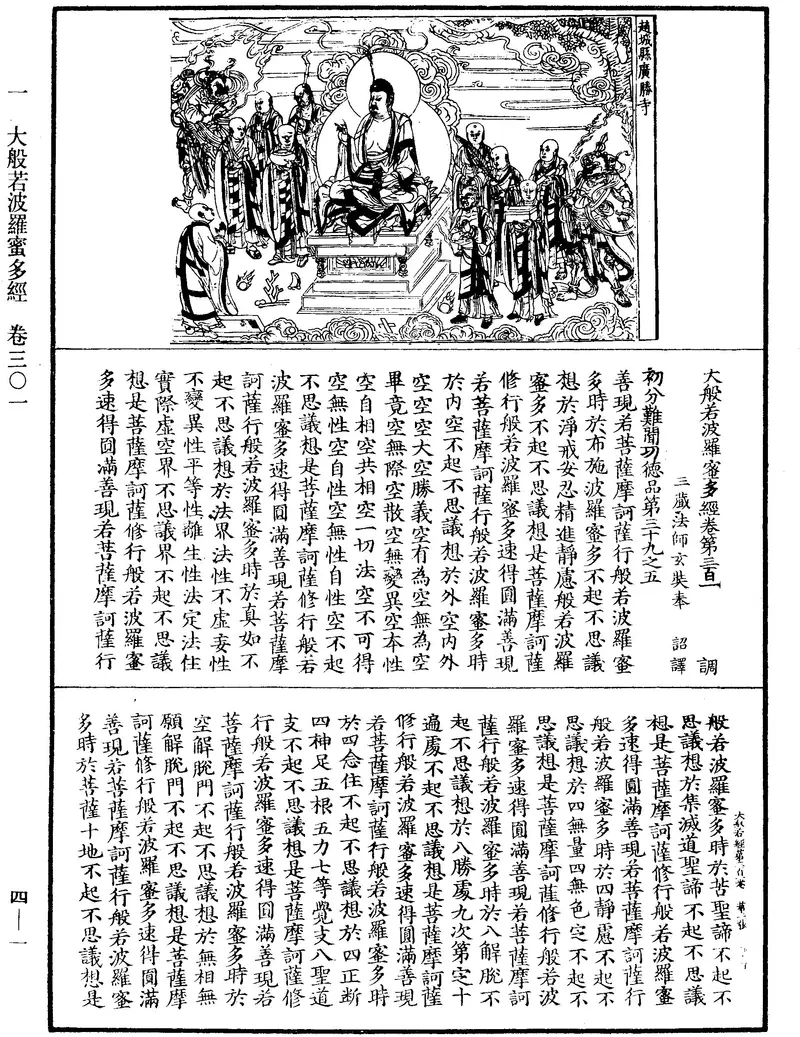 趙城縣廣勝寺
大般若波羅蜜多經卷第三百一　調
三藏法師玄奘奉　詔譯
初分難聞功德品第三十九之五
善現若菩薩摩訶薩行般若波羅蜜
多時於布施波羅蜜多不起不思議
想於淨戒安忍精進靜慮般若波羅
蜜多不起不思議想是菩薩摩訶薩
修行般若波羅蜜多速得圓滿善現
若菩薩摩訶薩行般若波羅蜜多時
於內空不起不思議想於外空內外
空空空大空勝義空有為空無為空
畢竟空無際空散空無變異空本性
空自相空共相空一切法空不可得
空無性空自性空無性自性空不起
不思議想是菩薩摩訶薩修行般若
波羅蜜多速得圓滿善現若菩薩摩
訶薩行般若波羅蜜多時於真如不
起不思議想於法界法性不虛妄性
不變異性平等性離生性法定法住
實際虛空界不思議界不起不思議
想是菩薩摩訶薩修行般若波羅蜜
多速得圓滿善現若菩薩摩訶薩行
般若波羅蜜多時於苦聖諦不起不
思議想於集滅道聖諦不起不思議
想是菩薩摩訶薩修行般若波羅蜜
多速得圓滿善現若菩薩摩訶薩行
般若波羅蜜多時於四靜慮不起不
思議想於四無量四無色定不起不
思議想是菩薩摩訶薩修行般若波
羅蜜多速得圓滿善現若菩薩摩訶
薩行般若波羅蜜多時於八解脫不
起不思議想於八勝處九次第定十
遍處不起不思議想是菩薩摩訶薩
修行般若波羅蜜多速得圓滿善現
若菩薩摩訶薩行般若波羅蜜多時
於四念住不起不思議想於四正斷
四神足五根五力七等覺支八聖道
支不起不思議想是菩薩摩訶薩修
行般若波羅蜜多速得圓滿善現若
菩薩摩訶薩行般若波羅蜜多時於
空解脫門不起不思議想於無相無
願解脫門不起不思議想是菩薩摩
訶薩修行般若波羅蜜多速得圓滿
善現若菩薩摩訶薩行般若波羅蜜
多時於菩薩十地不起不思議想是
一　大般若波羅蜜多經　卷三〇一
四—一